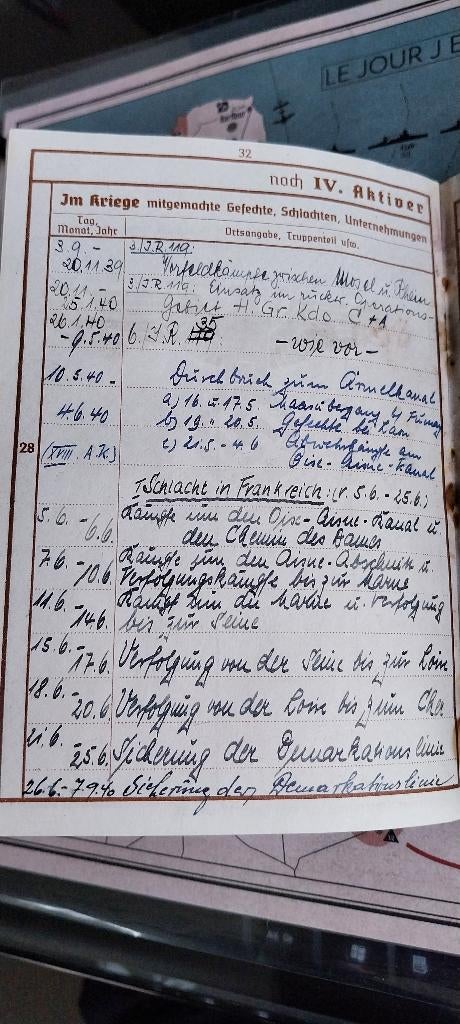 LE JOUR J E
32
noch IV. Aktiver
Im Kriege mitgemachte Gefechte, Schlachten, Unternehmungen
Tag, Monat, Jahr
Ortsangabe, Truppenteil usw.
3.9. - 20.11.39
3./J.R. 119:
Vorfeldkämpfe zwischen Mosel u. Rhein
20.11. - 25.1.40
3./J.R. 119: Einsatz im rückw. Operations-
Gebiet H. Gr. Kdo. C + A
26.1.40 - 9.5.40
6./J.R. 35
- wie vor -
10.5.40 -
Durchbruch zum Ärmelkanal
a) 16. u. 17.5 Maasübergang b/ Fumay
4.6.40
b) 19. " 20.5. Gefechte bei Laon
28
(XVIII. A.K)
c) 21.5. - 4.6 Abwehrkämpfe am
Oise-Aisne-Kanal
Schlacht in Frankreich: (v. 5.6. - 25.6.)
5.6. - 6.6.
Kämpfe um den Oise-Aisne-Kanal u.
den Chemin des Dames
7.6. - 10.6.
Kämpfe um den Aisne-Abschnitt u
Verfolgungskämpfe bis zur Marne
11.6. - 14.6.
Kämpfe um die Marne u. Verfolgung
bis zur Seine
15.6. - 17.6.
Verfolgung von der Seine bis zur Loire
18.6. - 20.6.
Verfolgung von der Loire bis zum Cher
21.6. - 25.6.
Sicherung der Demarkationslinie
26.6. - 7.9.40 Sicherung der Demarkationslinie